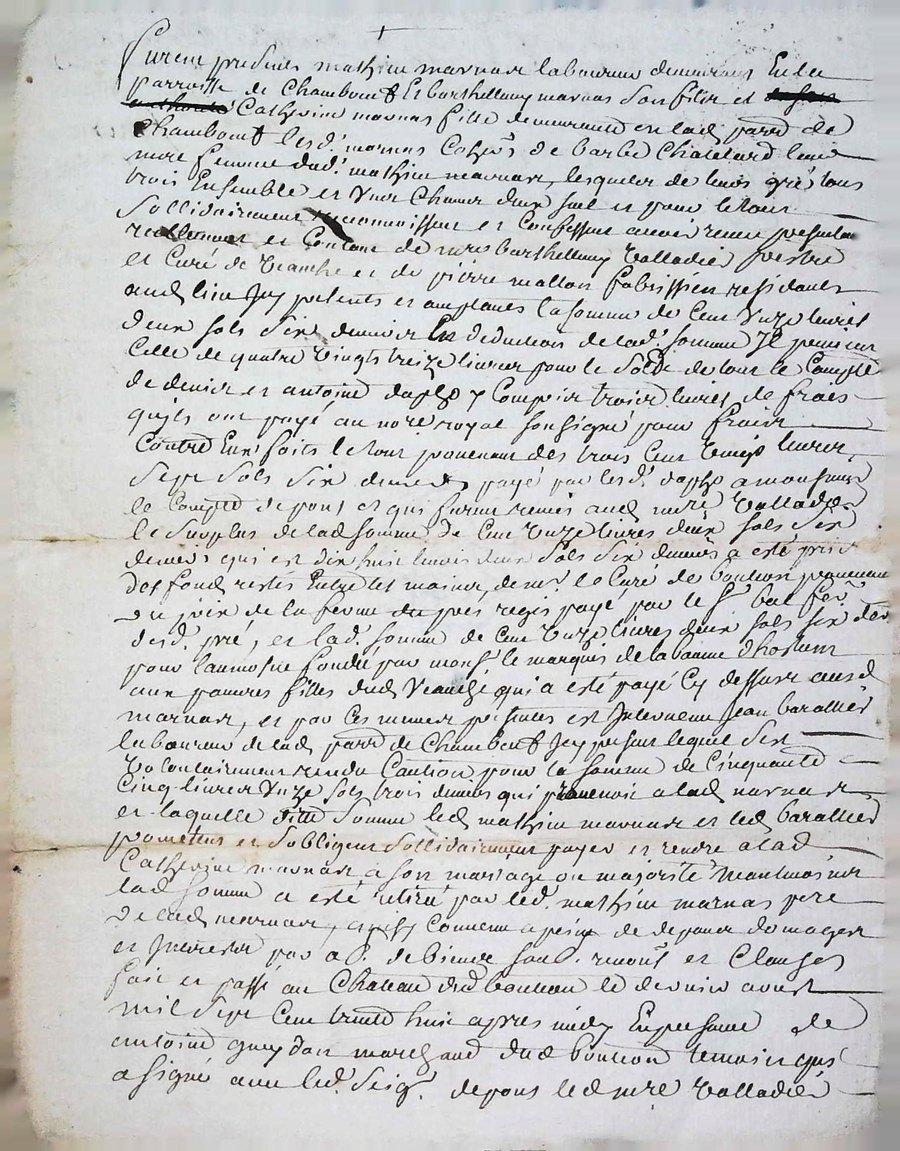 furent presents mathieu marnas laboureur demeurant En la
parroisse de Chambeuf Et barthellemy marnas Son fils et
Catherine marnas fille demeurant en lad parr de
Chambeuf lesd. marnas de barbe Chatelard leur
mere femme dud. mathieu marnas, lesquels de leurs gré tous
trois Ensemble et Un Chacun d'eux seul et pour le tout
Sollidairement reconnoissent et Confessent avoir receu presentem
reellement et Contant de mre barthellemy Valladier prestre
et Curé de et de pierre mallon fabrissien residants
aud lieu Icy presents et acceptants la somme de Cent Unze livres
deux sols Six deniers En deduction de lad. somme Il
Celle de quatre Vingts treize livres pour le Solde de tout le Compte
de denier et antoine y Compris trois livres de frais
quils ont payé au nore royal soussigné pour frais
Contre Eux faits le tout provenant des trois Cent Vingt livres
Sept Sols Six deniers payé par lesd. a monsieur
le Compte depons et qui furent remis aud mre Valladier
le Surplus de lad somme de Cent Unze livres deux sols six
deniers qui est dix huit livres deux Sols Six deniers a esté pris
des fond restés Entre les mains de mr le Curé de bouteon provenant
du prix de la ferme du pré payé par le Sr
desd. pré, et lad. somme de Cent Unze livres deux sols six den
pour laumosne fondé par mons le marquis de la baume dhostun
aux pauvres filles dud Veauche qui a esté payé Cy dessus ausd
marnas, et par Ces mesmes presentes est Intervenu Jean barallier
laboureur de lad parr de Chambeuf Icy present lequel Sest
Volontairement rendu Caution pour la somme de Cinquante
Cinq livres Unze sols trois deniers qui provenoit a lad marnas
et laquelle ditte Somme led mathieu marnas et led barallier
promettent et Sobligent Sollidairement payer et rendre a lad
Catherine marnas a Son mariage ou majorité
lad somme a esté retiré par led. mathieu marnas pere
de lad marnas, Convenu a peine de depans domages
et Interests par de biens et Clauses
fait et passé au Chateau dud bouteon le dernier aoust
mil Sept Cent trente huit apres midy En presence de
antoine gueydan marchand dud bouteon temoin qui
a signé avec led. Seigr depons led mre Valladier